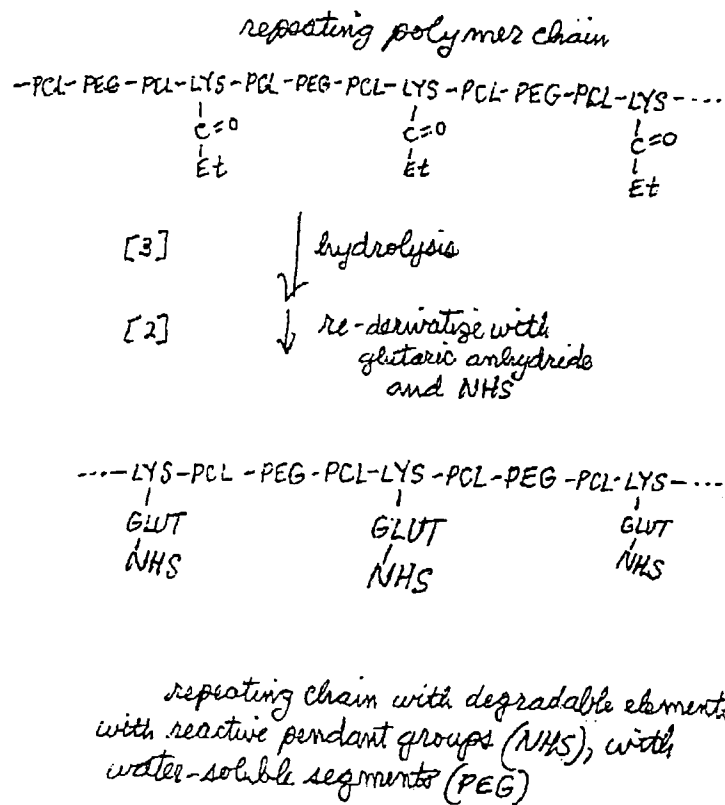 repeating polymer chain
-PCL-PEG-PCL-LYS-PCL-PEG-PCL-LYS-PCL-PEG-PCL-LYS-----
C=O C=O C=O
Et Et Et
[3] hydrolysis
[2] re-derivatize with
glutaric anhydride
and NHS
----LYS-PCL-PEG-PCL-LYS-PCL-PEG-PCL-LYS----
GLUT GLUT GLUT
NHS NHS NHS
repeating chain with degradable element
with reactive pendant groups (NHS), with
water-soluble segments (PEG)